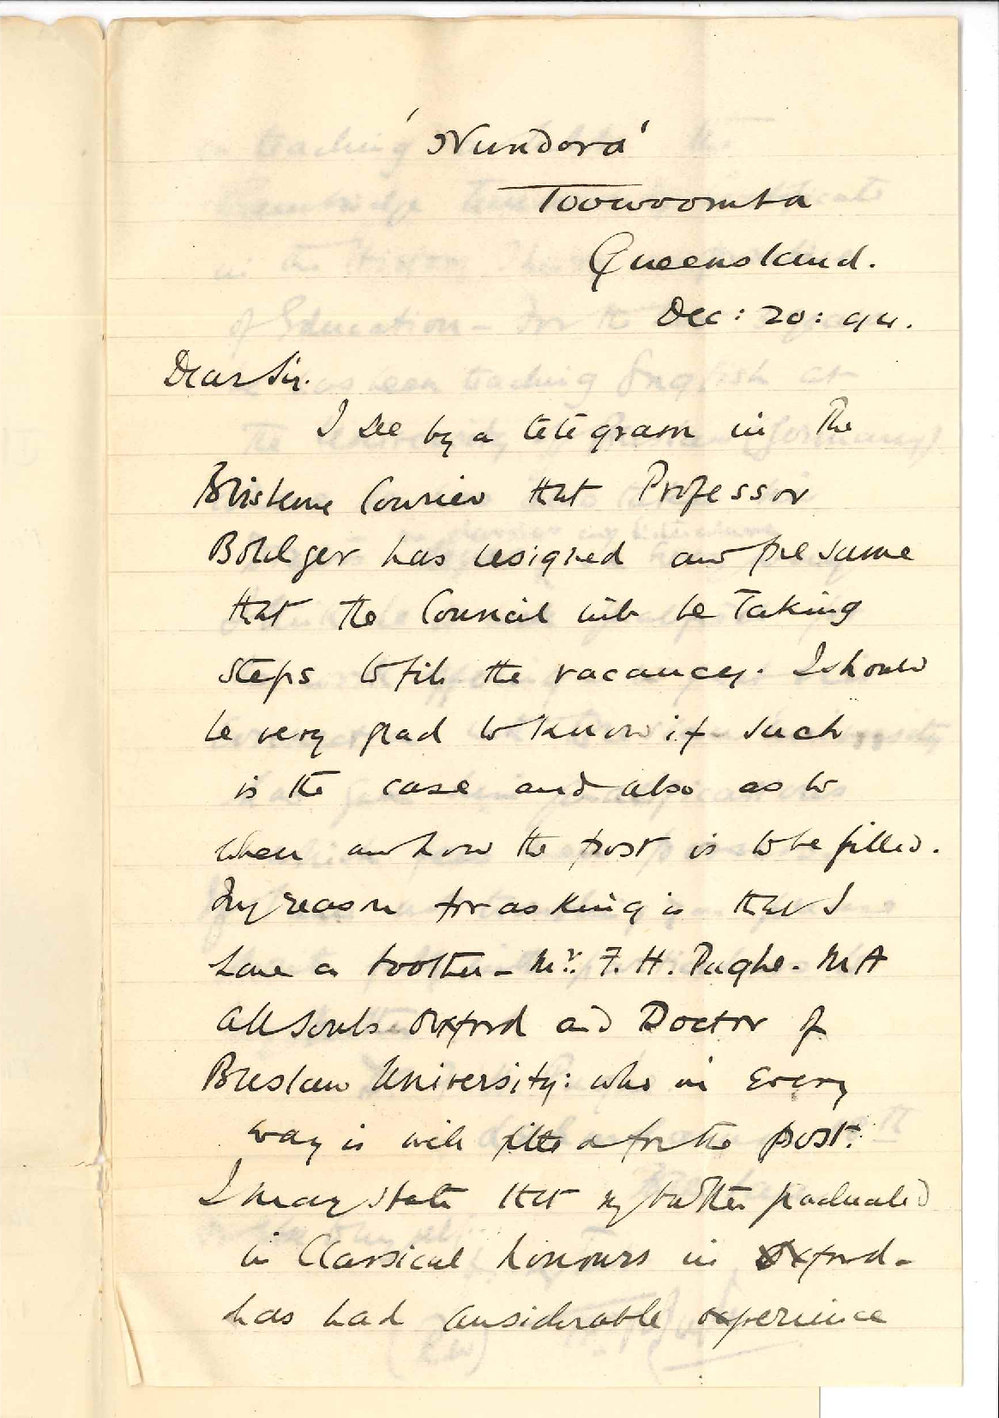 'Nundora'
Toowoomba
Queensland.
Dec: 20: 94.
Dear Sir.
I see by a telegram in the
Brisbane Courier that Professor
Boulger has resigned and presume
that the Council will be taking
steps to fill the vacancy. I should
be very glad to know if such
is the case and also as to
when and how the post is to be filled.
My reason for asking is that I
have a brother - Mr. F. H. Pughe. MA
All Souls Oxford and Doctor of
Breslau University: who in every
way is well fitted for the post.
I may state that my brother graduated
in Classical honours in Oxford -
has had considerable experience